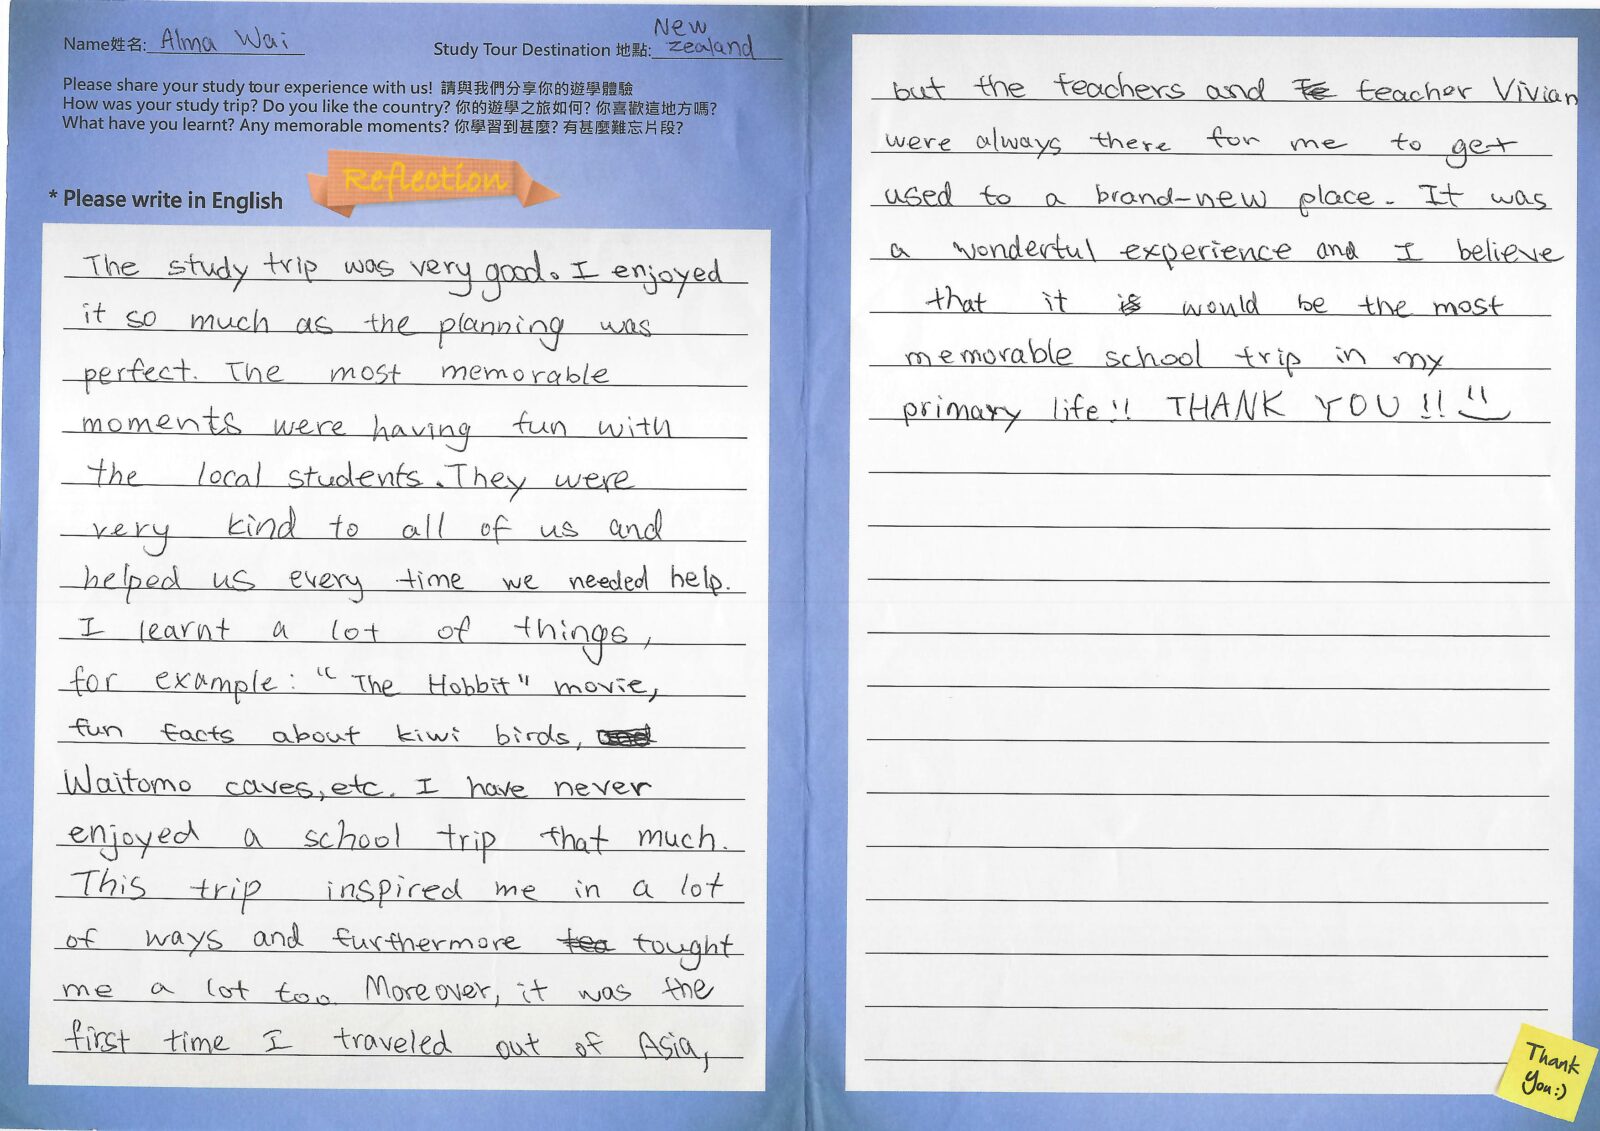 Name姓名: Alma Wai
Study Tour Destination 地點: New Zealand
Please share your study tour experience with us! 請與我們分享你的遊學體驗
How was your study trip? Do you like the country? 你的遊學之旅如何? 你喜歡這地方嗎?
What have you learnt? Any memorable moments? 你學習到甚麼? 有甚麼難忘片段?
Reflection
* Please write in English
The study trip was very good. I enjoyed
it so much as the planning was
perfect. The most memorable
moments were having fun with
the local students. They were
very kind to all of us and
helped us every time we needed help.
I learnt a lot of things,
for example: "The Hobbit" movie,
fun facts about kiwi birds,
Waitomo caves, etc. I have never
enjoyed a school trip that much.
This trip inspired me in a lot
of ways and furthermore tea tought
me a lot too. Moreover, it was the
first time I traveled out of Asia,
but the teachers and Te teacher Vivian
were always there for me to get
used to a brand-new place. It was
a wonderful experience and I believe
that it is would be the most
memorable school trip in my
primary life!! THANK YOU!!
Thank
You:)